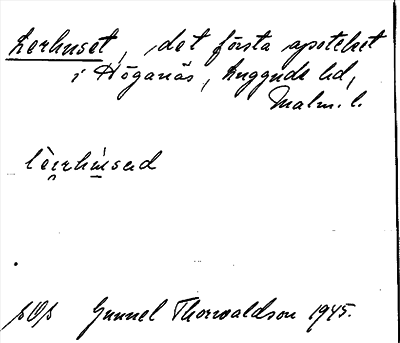 Lerhuset, det första apoteket
i Höganäs, Luggude hd,
Malm. l.
lèirhùsəd
sOs Gunnel Thorwaldson 1945.